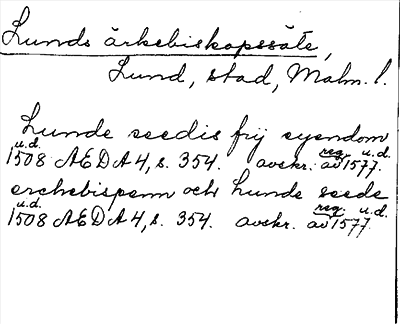 Lunds ärkebiskopssäte,
Lund, stad, Malm. l.
Lunde seedis frij eyendom
u.d. 1508 AEDA 4, s. 354. avskr. av reg. u.d. 1577.
erchebispenn och Lunde seede
u.d. 1508 AEDA 4, s. 354. avskr. av reg. u.d. 1577.